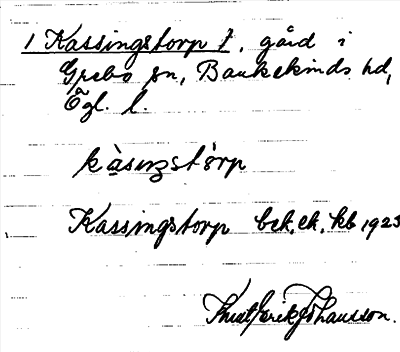 1 Kassingstorp 1, gård i
Grebo sn, Bankekinds hd,
Ögl. l.
kàsıŋstǒrp
Kassingstorp bek. ek. kb 1923
Knut Erik Johansson.